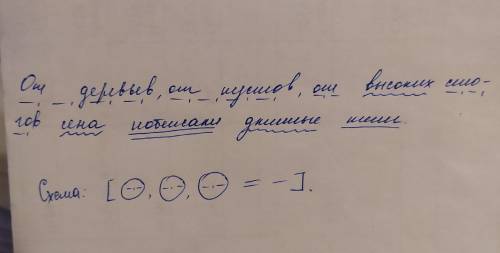 От деревьев, от кустов, от высоких сто-
гов сена побежали длинные тени.
Схема: [⊝, ⊝, ⊝ = –].